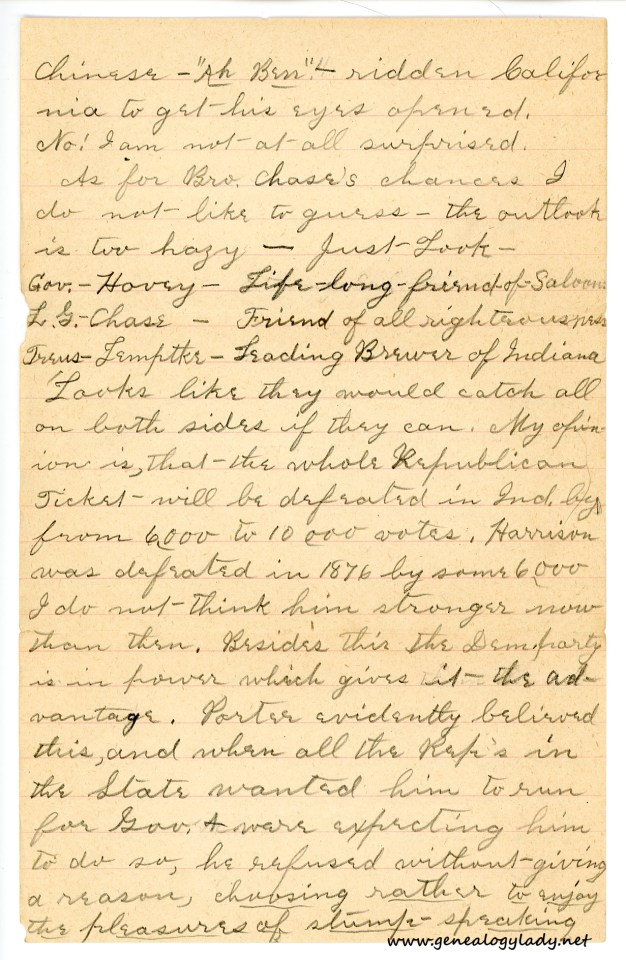 Chinese - "Ah Ben" - ridden Califor
nia to get his eyes opened.
No! I am not at all surprised.
As for Bro. Chase's chances I
do not like to guess - the outlook
is too hazy — Just Look -
Gov. - Hovey - Life-long-friend-of-Saloons
L.G. - Chase - Friend of all righteousness
Treus - Lemptke - Leading Brewer of Indiana
Looks like they would catch all
on both sides if they can. My opin-
ion is, that the whole Republican
Ticket will be defeated in Ind. by
from 6,000 to 10 000 votes. Harrison
was defeated in 1876 by some 6,000
I do not think him stronger now
than then. Besides this the Dem. party
is in power which gives it the ad-
vantage. Porter evidently believed
this, and when all the Rep's in
the State wanted him to run
for Gov. & were expecting him
to do so, he refused without giving
a reason, choosing rather to enjoy
the pleasures of stump-speaking
www.genealogylady.net